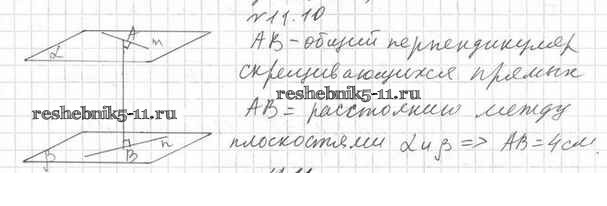 №11.10
A
m
α
AB – общий перпендикуляр
скрещивающихся прямых
reshebnik5-11.ru
reshebnik5-11.ru
AB = расстоянию между
плоскостями α и β => AB = 4 см.
n
B
β
11.11